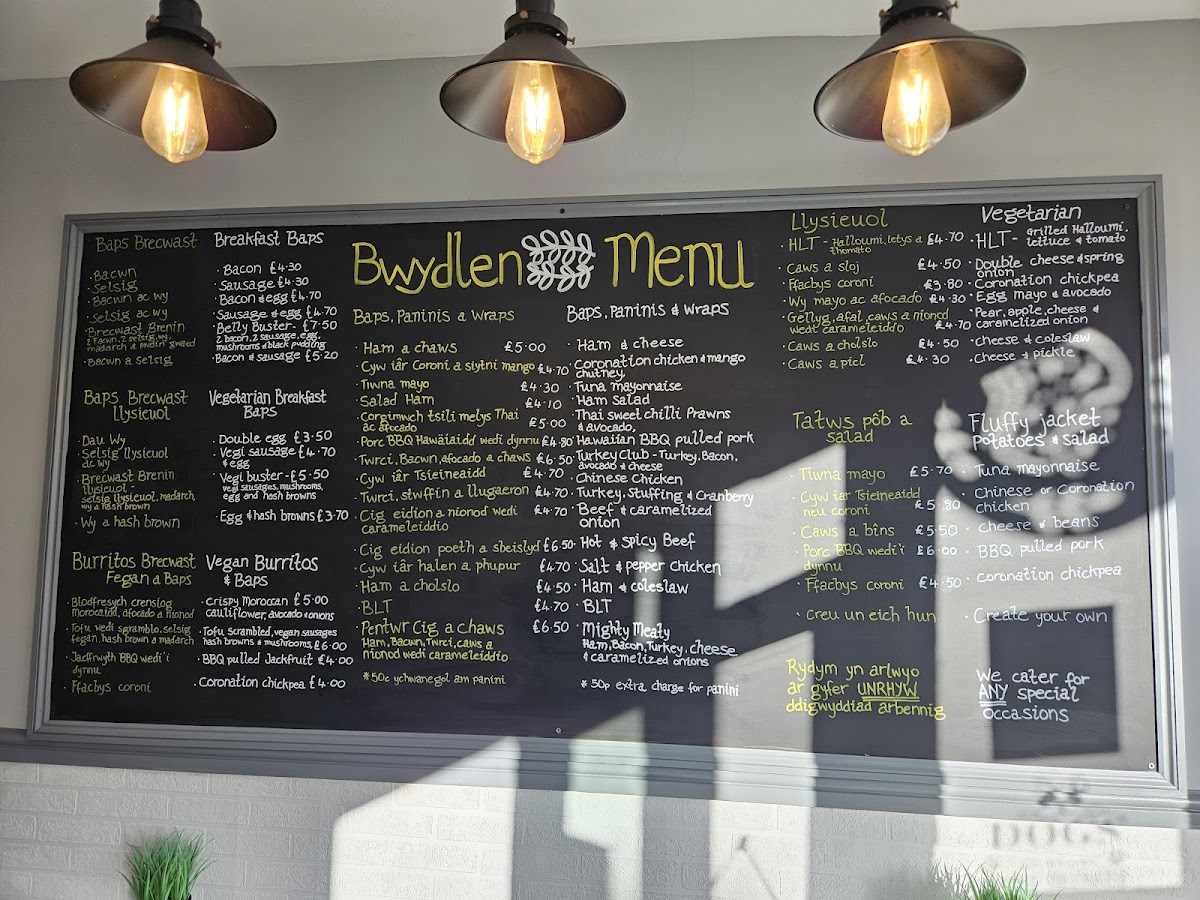 Bwydlen Menu
Baps Brecwast
Bacwn
Selsig
Bacwn ac wy
Selsig ac wy
Brecwast Brenin
2 Facwn, 2 selsig, wy,
madarch a pwdin gwaed
Bacwn a selsig
Breakfast Baps
Bacon £4.30
Sausage £4.30
Bacon & egg £4.70
Sausage & egg £4.70
Belly Buster - £7.50
2 bacon, 2 sausage, egg,
mushrooms & black pudding
Bacon & sausage £5.20
Baps Brecwast
Llysieuol
Dau Wy
Selsig llysieuol
ac wy
Brecwast Brenin
llysieuol -
selsig llysieuol, madarch
wy a hash brown
Wy a hash brown
Vegetarian Breakfast
Baps
Double egg £3.50
Vegi sausage £4.70
& egg
Vegi buster - £5.50
vegi sausages, mushrooms,
egg and hash browns
Egg & hash browns £3.70
Burritos Brecwast
Fegan a Baps
Blodfresych crensiog
morocaidd, afocado a nionod
Tofu wedi sgramblo, selsig
fegan, hash brown a madarch
Jacffrwyth BBQ wedi'i
dynnu
Ffacbys coroni
Vegan Burritos
& Baps
Crispy Moroccan £5.00
cauliflower, avocado & onions
Tofu scrambled, vegan sausages
hash browns & mushrooms £6.00
BBQ pulled Jackfruit £4.00
Coronation chickpea £4.00
Baps, Paninis a Wraps
Ham a chaws £5.00
Cyw iâr coroni a siytni mango £4.70
Tiwna mayo £4.30
Salad Ham £4.10
Corgimwch tsili melys Thai £5.00
ac afocado
Porc BBQ Hawäiaidd wedi dynnu £4.80
Twrci, Bacwn, afocado a chaws £6.50
Cyw iâr Tsieineaidd £4.70
Twrci, stwffin a llugaeron £4.70
Cig eidion a nionod wedi £4.70
carameleiddio
Cig eidion poeth a sbeislyd £6.50
Cyw iâr halen a phupur £4.70
Ham a cholslo £4.50
BLT £4.70
Pentwr Cig a chaws £6.50
Ham, Bacwn, Twrci, caws a
nionod wedi carameleiddio
*50c ychwanegol am panini
Baps, Paninis & Wraps
Ham & cheese
Coronation chicken & mango
chutney
Tuna mayonnaise
Ham Salad
Thai sweet chilli Prawns
& avocado,
Hawaiian BBQ pulled pork
Turkey Club - Turkey, Bacon,
avocado & cheese
Chinese Chicken
Turkey, Stuffing & Cranberry
Beef & caramelized
onion
Hot & Spicy Beef
Salt & pepper Chicken
Ham & coleslaw
BLT
Mighty Meaty
Ham, Bacon, Turkey, cheese
& caramelized onions
* 50p extra charge for panini
Llysieuol
HLT - Halloumi, letys a £4.70
thomato
Caws a sloj £4.50
Ffacbys coroni £3.80
Wy mayo ac afocado £4.30
Gellyg, afal, caws a nionod
wedi carameleiddio £4.70
Caws a cholslo £4.50
Caws a picl £4.30
Vegetarian
HLT - Grilled Halloumi,
lettuce & tomato
Double cheese & spring
onion
Coronation chickpea
Egg mayo & avocado
Pear, apple, cheese &
caramelized onion
Cheese & coleslaw
Cheese & pickle
Tatws pôb a
salad
Tiwna mayo £5.70
Cyw iar Tsieineaidd
neu coroni £5.80
Caws a bîns £5.50
Porc BBQ wedi'i £6.00
dynnu
Ffacbys coroni £4.50
Creu un eich hun
Fluffy jacket
potatoes & salad
Tuna mayonnaise
Chinese or Coronation
chicken
Cheese & beans
BBQ pulled pork
Coronation chickpea
Create your own
Rydym yn arlwyo
ar gyfer UNRHYW
ddigwyddiad arbennig
We cater for
ANY special
occasions
DOGS